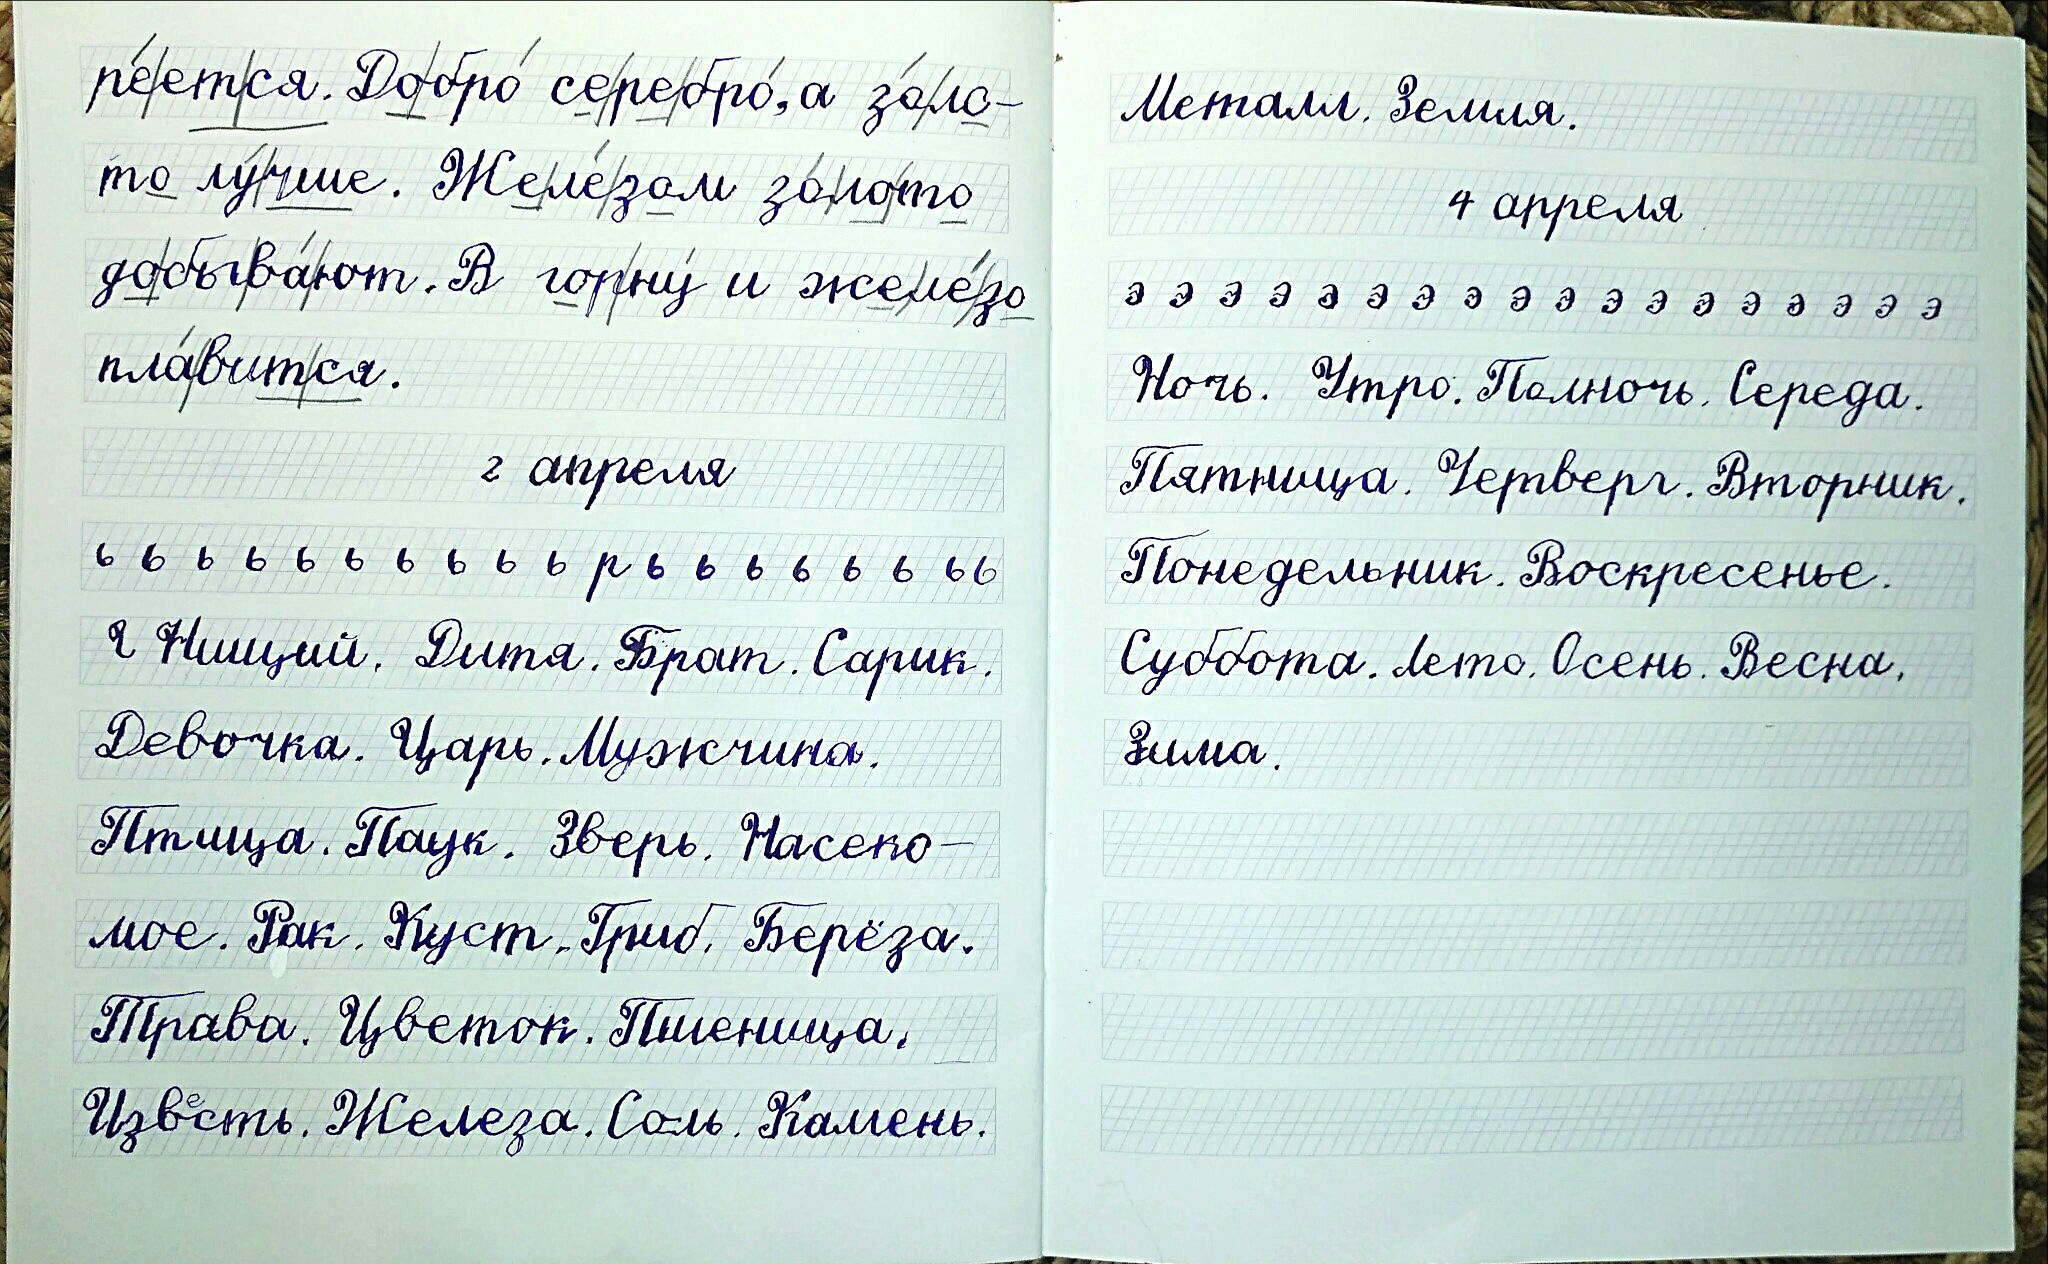 реется. Добро серебро, а золо-
то лучше. Железом золото
добывают. В горну и железо
плавится.
2 апреля
ь ь ь ь ь ь ь ь ь ь р ь ь ь ь ь ь ь ь
Ч Нищий. Дитя. Брат. Сарик.
Девочка. Царь. Мужчина.
Птица. Паук. Зверь. Насеко-
мое. Рак. Куст. Гриб. Берёза.
Трава. Цветок. Пшеница.
Известь. Железа. Соль. Камень.
Металл. Земля.
4 арреля
э э э э э э э э э э э э э э э э э э
Ночь. Утро. Полночь. Середа.
Пятница. Четверг. Вторник.
Понедельник. Воскресенье.
Суббота. Лето. Осень. Весна.
Зима.